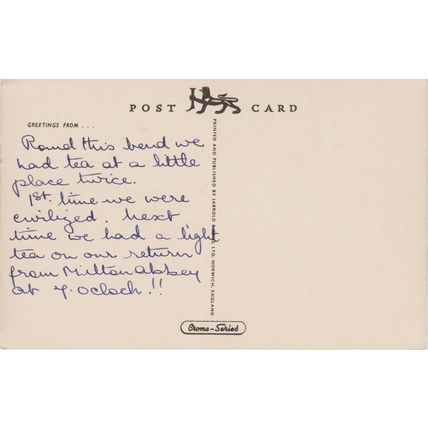 POST CARD
GREETINGS FROM ...
Round this bend we
had tea at a little
place twice.
1st. time we were
civilized. Next
time we had a light
tea on our return
from Milton Abbey
at 7. oclock!!
PRINTED AND PUBLISHED BY JARROLD & SONS LTD, NORWICH, ENGLAND
Crome-Series